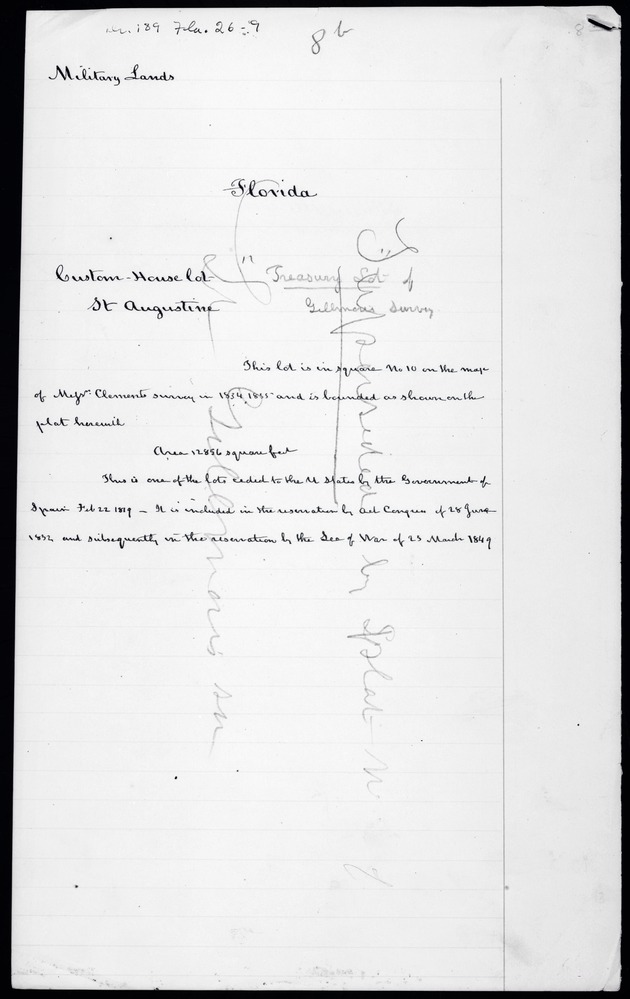 189 Fla. 26-9
8b
8
Military Lands
Florida
Custom-House lot "Treasury Lot" of
St Augustine Gillmore's Survey
This lot is in square No 10 on the map
of Clements survey in 1834 1835 and is bounded as shown on the
plat herewith
Area 12856 square feet
This is one of the lots ceded to the U States by the Government of
Spain Feb 22 1819 – It is included in the reservation by act Congress of 28 June
1832 and subsequently in the reservation by the Sec of War of 23 March 1849
Superseded by Plat
of Gillmore's